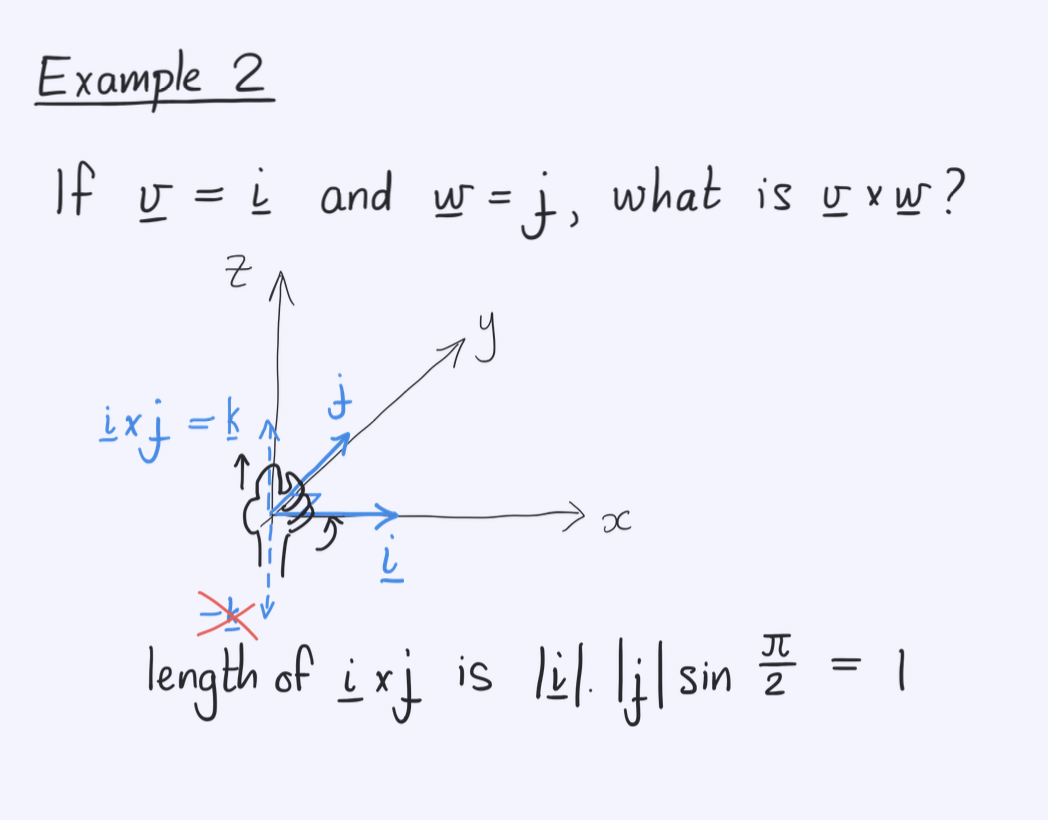 Example 2
If v = i and w = j, what is v × w?
z
y
j
i × j = k
x
i
-k
length of i × j is |i|. |j| sin π/2 = 1